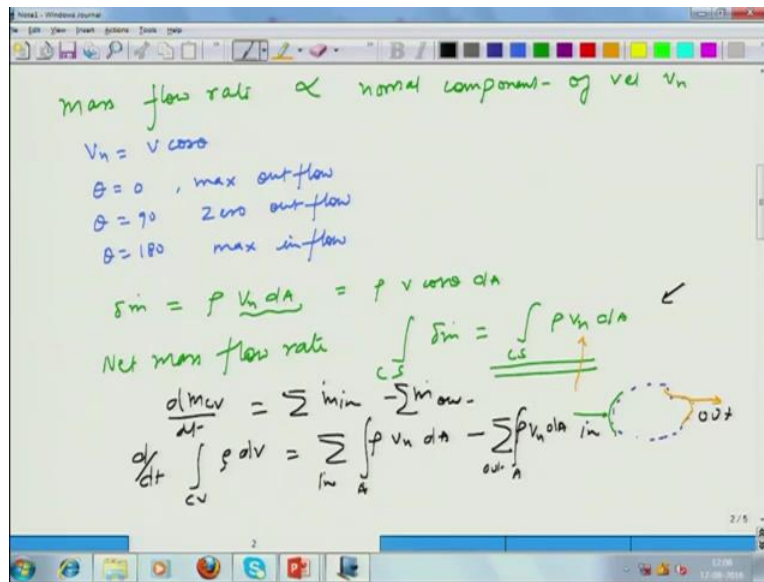 Note1 - Windows Journal
File Edit View Insert Actions Tools Help
B I
mass flow rate ∝ normal component of vel Vn
Vn = V cosθ
θ = 0 , max outflow
θ = 90 zero outflow
θ = 180 max inflow
δṁ = ρ Vn dA = ρ V cosθ dA
Net mass flow rate ∫CS δṁ = ∫CS ρ Vn dA
dmCV/dt = Σ ṁin - Σ ṁout
in out
d/dt ∫CV ρ dV = Σin ∫A ρ Vn dA - Σout ∫A ρ Vn dA
2/5
2
12:08
12-08-2016